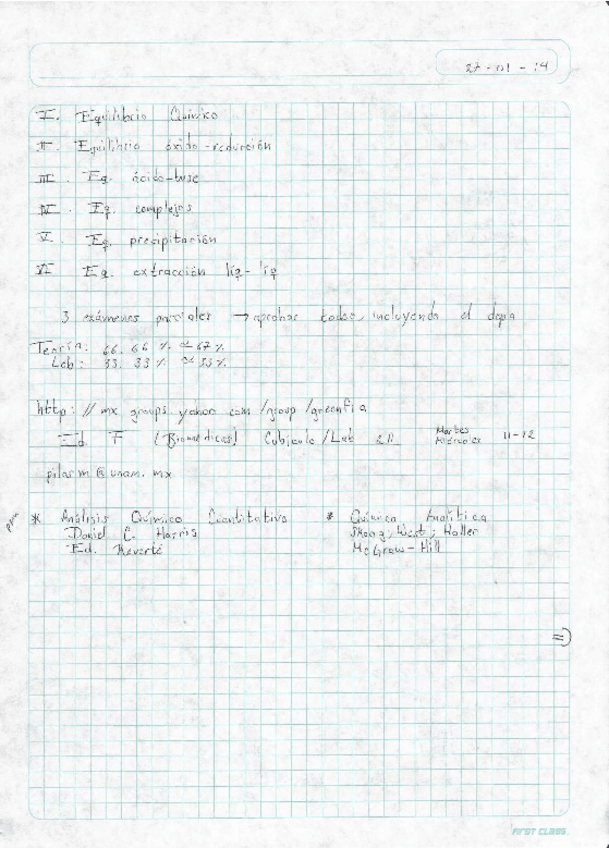 27 - 01 - 14
I. Equilibrio Químico
II. Equilibrio óxido-reducción
III. Eq. ácido-base
IV. Eq. complejos
V. Eq. precipitación
VI Eq. extracción líq-líq
3 exámenes parciales → aprobar todos, incluyendo el depa
Teoría: 66.66 % ≃ 67 %
Lab: 33.33 % ≃ 33 %
http://mx groups yahoo com/group/greenfia
Ed. F (Biomédicas) Cubículo/Lab 211 Martes Miércoles 11-12
pilarm@unam.mx
* Análisis Químico Cuantitativo
Daniel C. Harris
Ed. Reverté
* Química Analítica
Skoog, West, Holler
McGraw-Hill
=)
FIRST CLASS.